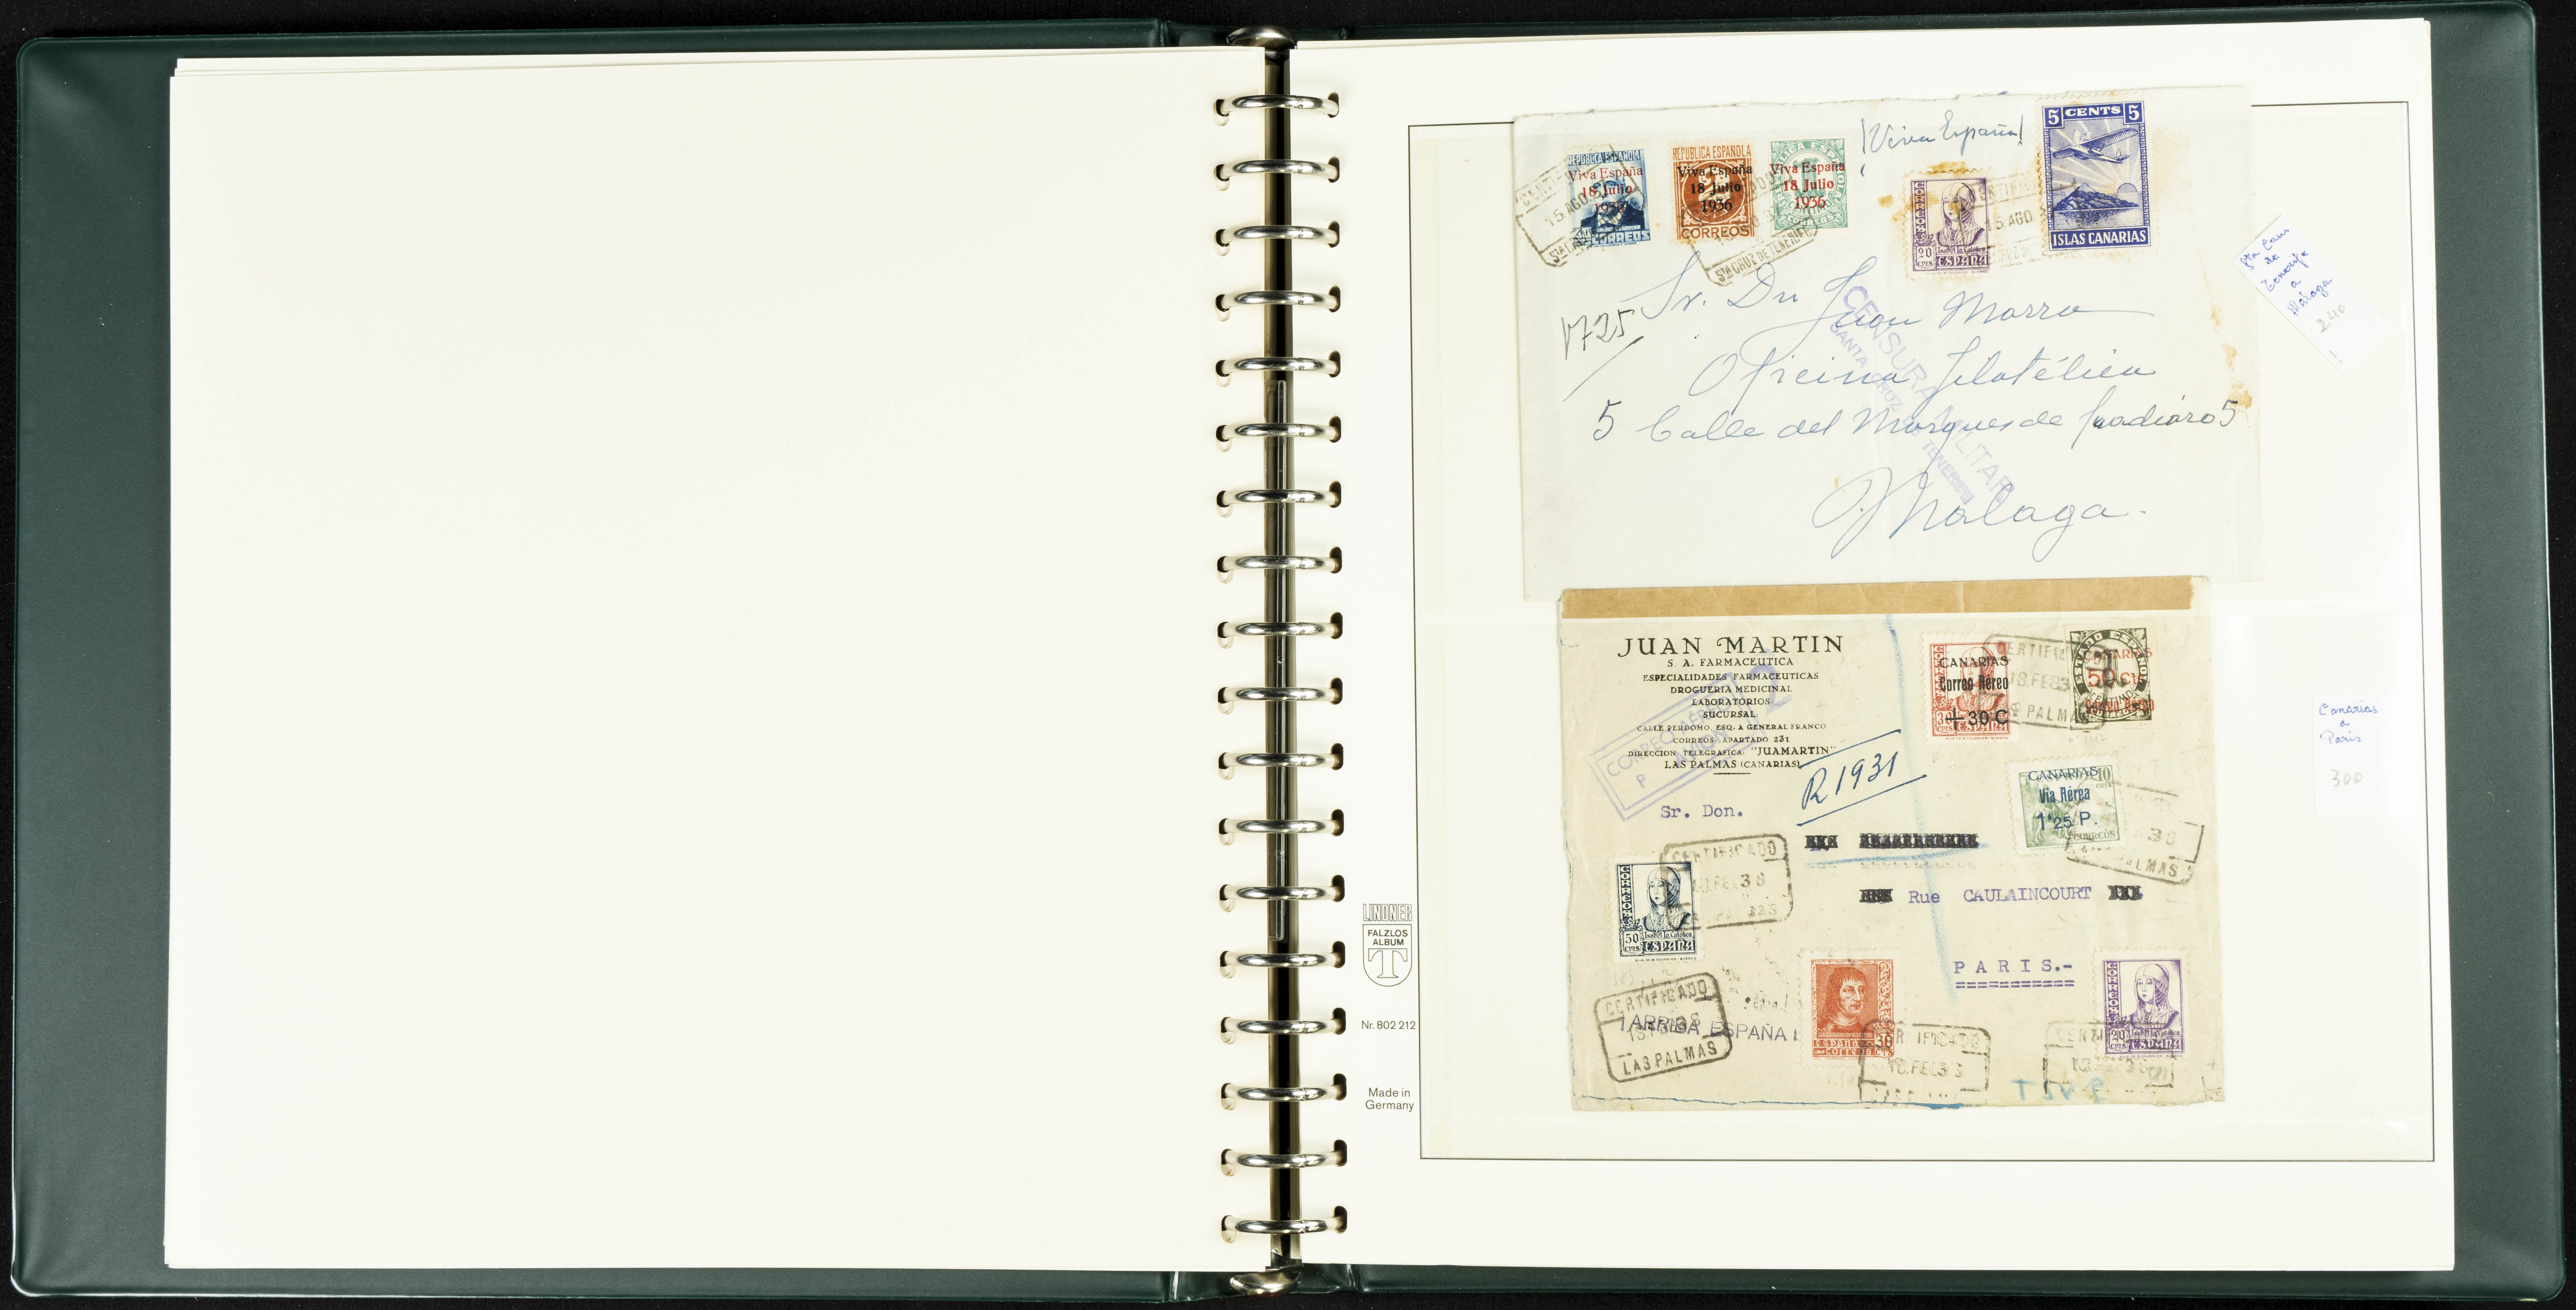 REPUBLICA ESPAÑOLA
Viva España
18 Julio
1936
CORREOS
REPUBLICA ESPAÑOLA
Viva España
18 Julio
1936
CORREOS
Viva España
18 Julio
1936
¡Viva España!
5 CENTS 5
ISLAS CANARIAS
20
CTS
Isabel la Católica
ESPAÑA
15 AGO
STA CRUZ DE TENERIFE
15 AGO
V725
Sr. Dn Juan Marra
Oficina Filatélica
5 Calle del Marques de Guadiaro 5
Málaga.
CENSURA MILITAR
SANTA CRUZ DE TENERIFE
Sta Cruz
de
Tenerife
a
Málaga
240
JUAN MARTIN
S. A. FARMACEUTICA
ESPECIALIDADES FARMACEUTICAS
DROGUERIA MEDICINAL
LABORATORIOS
SUCURSAL
CALLE PERDOMO, ESQ. A GENERAL FRANCO
CORREOS: APARTADO 231
DIRECCION TELEGRAFICA: "JUAMARTIN"
LAS PALMAS (CANARIAS)
CORREO AEREO
P AVION
2
R 1931
CANARIAS
Correo Aéreo
+ 30 C
CANARIAS
50 Cts
Correo Aéreo
CANARIAS
Via Aérea
1'25 P.
CORREOS
Sr. Don.
Rue CAULAINCOURT
PARIS.-
CERTIFICADO
18.FEB38
50
CTS
Isabel la Católica
ESPAÑA
CERTIFICADO
LAS PALMAS
¡ARRIBA ESPAÑA!
ESPAÑA 30
CORREOS CTS
CERTIFICADO
18.FEB38
20
CTS
ESPAÑA
Canarias
a
Paris
300
LINDNER
FALZLOS
ALBUM
T
Nr. 802 212
Made in
Germany